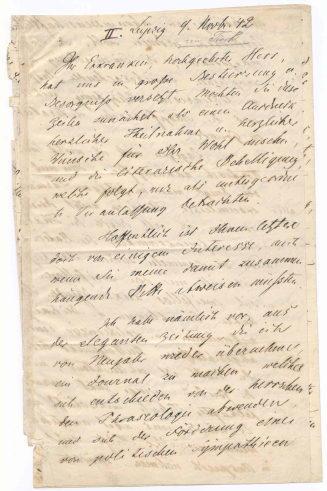 II. Leipzig 9. Novbr. 42
Ihr Erkranken, hochgeehrter Herr,
hat uns in große Bestürzung u
Besorgniß versetzt. Möchten Sie diese
Zeilen zunächst als einen Ausdruck
herzlicher Theilnahme u herzlicher
Wünsche für Ihr Wohl ansehen
und die literarische Behelligung
welche folgt, nur als untergeordnete
Veranlassung betrachten.
Hoffentlich ist Ihnen letztere
doch von einigem Interesse, auch
wenn Sie meine damit zusammen
hängende Bitte abweisen müßten.
Ich habe nämlich vor, aus
der eleganten Zeitung die ich
von Neujahr wieder übernehme,
ein Journal zu machen, welches
sich entschieden von der herrschen
den Phraseologie abwenden
und sich der Förderung eines
von politischen Sympathieen